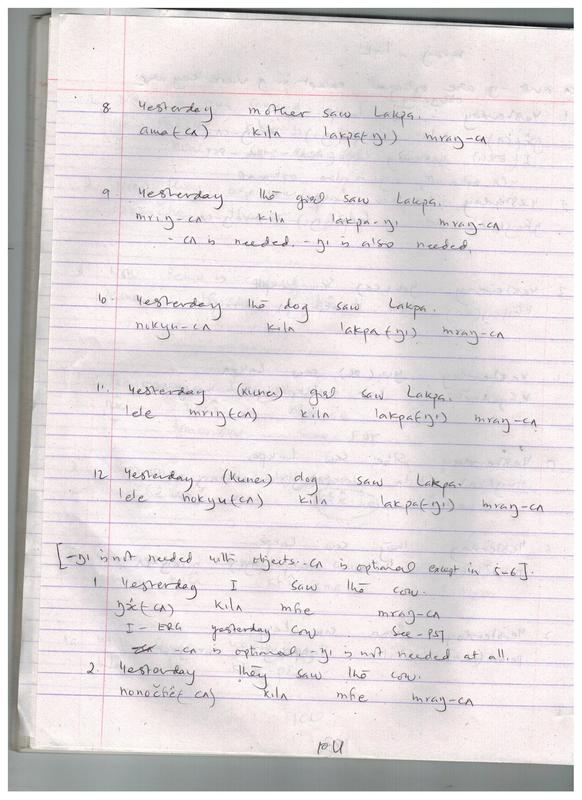 8 Yesterday mother saw Lakpa.
ama(-cʌ) kilʌ lakpa(-ŋi) mraŋ-cʌ
9 Yesterday the girl saw Lakpa.
mriŋ-cʌ kilʌ lakpa-ŋi mraŋ-cʌ
- cʌ is needed. -ŋi is also needed.
10 Yesterday the dog saw Lakpa.
nokyu-cʌ kilʌ lakpa(ŋi) mraŋ-cʌ
11. Yesterday (Kuner) girl saw Lakpa.
'de mriŋ(-cʌ) kilʌ lakpa(-ŋi) mraŋ-cʌ
12 Yesterday (Kuner) dog saw Lakpa.
'de nokyu(-cʌ) kilʌ lakpa(-ŋi) mraŋ-cʌ
[-ŋi is not needed with objects. -cʌ is optional except in 5-6].
1. Yesterday I saw the cow.
kilʌ mraŋ-cʌ
I - ERG yesterday cow see-PST
-cʌ is optional, -ŋi is not needed at all.
2. Yesterday they saw the cow.
kilʌ mraŋ-cʌ